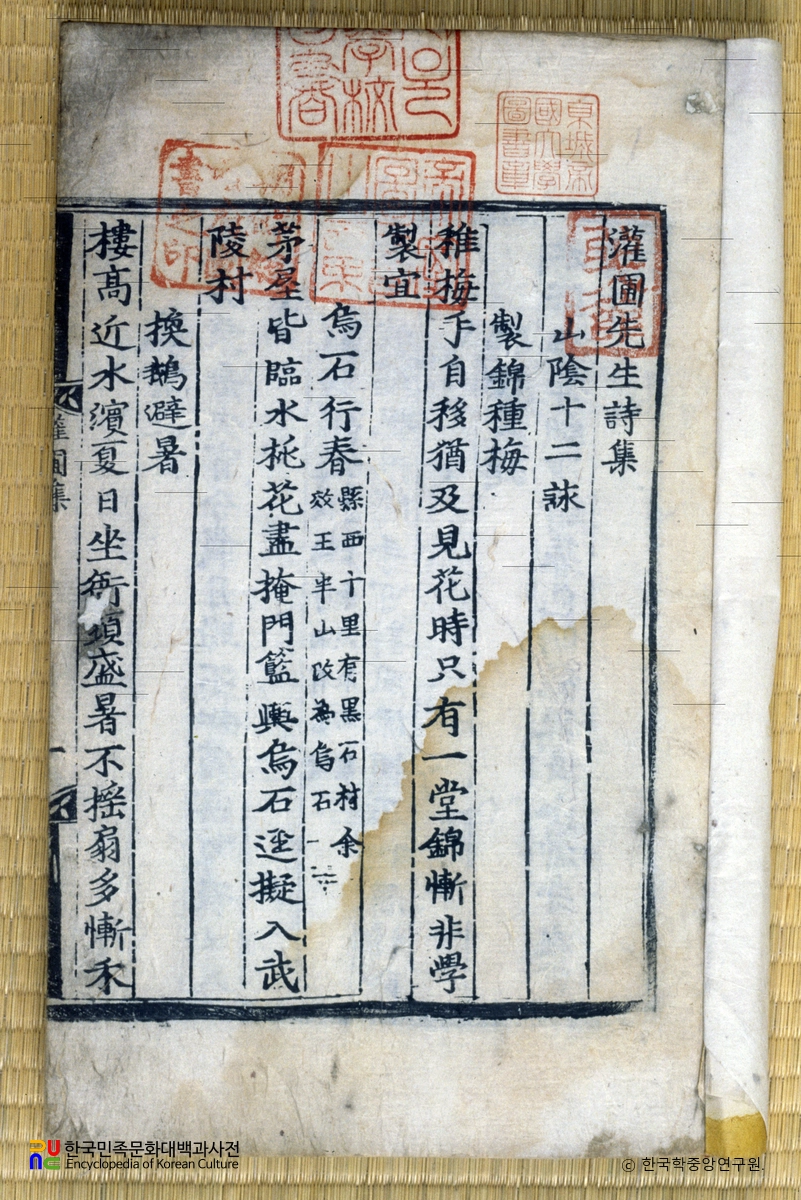 灌圃先生詩集
山陰十二詠
製錦種梅
稚梅手自移猶及見花時只有一堂錦慚非學
製宜
烏石行春
縣西十里有黑石村余
效王半山改為烏石
茅屋皆臨水桃花盡掩門籃輿烏石逕擬入武
陵村
換鵝避暑
樓高近水濱夏日坐衙頻盛暑不摇扇多慚禾
灌圃集
한국민족문화대백과사전
Encyclopedia of Korean Culture
© 한국학중앙연구원.